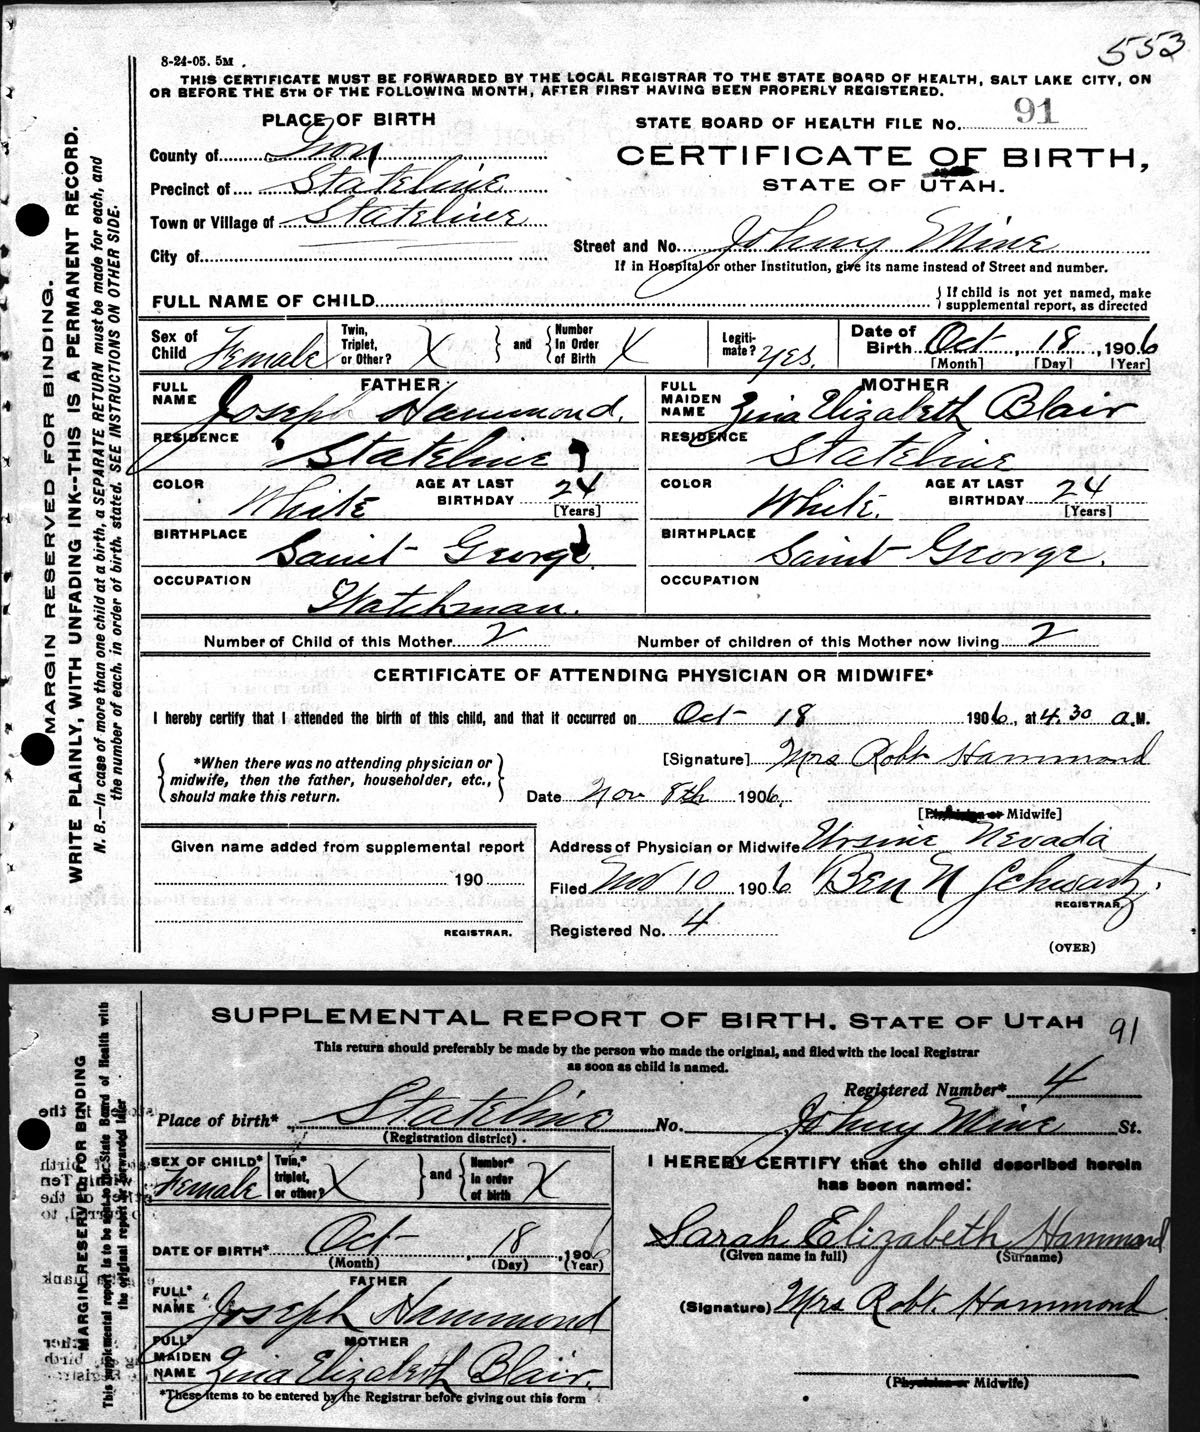 553
8-24-05. 5M .
THIS CERTIFICATE MUST BE FORWARDED BY THE LOCAL REGISTRAR TO THE STATE BOARD OF HEALTH, SALT LAKE CITY, ON
OR BEFORE THE 5TH OF THE FOLLOWING MONTH, AFTER FIRST HAVING BEEN PROPERLY REGISTERED.
PLACE OF BIRTH
STATE BOARD OF HEALTH FILE No. 91
County of Iron
CERTIFICATE OF BIRTH,
Precinct of Stateline
STATE OF UTAH.
Town or Village of Stateline
Street and No. Johny Mine
City of
If in Hospital or other Institution, give its name instead of Street and number.
FULL NAME OF CHILD
{ If child is not yet named, make
supplemental report, as directed
Sex of Child Female
Twin, Triplet, or Other? X } and { Number In Order of Birth X
Legiti- mate? yes.
Date of Birth Oct , 18 , 1906
[Month] [Day] [Year]
FATHER
FULL NAME Joseph Hammond.
MOTHER
FULL MAIDEN NAME Zina Elizabeth Blair
RESIDENCE Stateline
RESIDENCE Stateline
COLOR White
AGE AT LAST BIRTHDAY 24
[Years]
COLOR White.
AGE AT LAST BIRTHDAY 24
[Years]
BIRTHPLACE Saint George.
BIRTHPLACE Saint George.
OCCUPATION Watchman.
OCCUPATION
Number of Child of this Mother 2
Number of children of this Mother now living 2
CERTIFICATE OF ATTENDING PHYSICIAN OR MIDWIFE*
I hereby certify that I attended the birth of this child, and that it occurred on Oct 18 1906, at 4.30 a.M.
*When there was no attending physician or
midwife, then the father, householder, etc.,
should make this return.
[Signature] Mrs Robt Hammond
Date Nov 8th 1906.
[Physician or Midwife]
Given name added from supplemental report
Address of Physician or Midwife Ursine Nevada
190
Filed Nov 10 1906 Ben N Schwartz.
REGISTRAR.
REGISTRAR.
Registered No. 4
(OVER)
MARGIN RESERVED FOR BINDING.
WRITE PLAINLY, WITH UNFADING INK--THIS IS A PERMANENT RECORD.
N. B.—In case of more than one child at a birth, a SEPARATE RETURN must be made for each, and
the number of each, in order of birth, stated. SEE INSTRUCTIONS ON OTHER SIDE.
SUPPLEMENTAL REPORT OF BIRTH. STATE OF UTAH 91
This return should preferably be made by the person who made the original, and filed with the local Registrar
as soon as child is named.
Registered Number* 4
Place of birth* Stateline No. Johny Mine St.
(Registration district)
SEX OF CHILD* Female
Twin,* triplet, or other? X } and { Number* in order of birth X
I HEREBY CERTIFY that the child described herein
has been named:
DATE OF BIRTH* Oct , 18 , 1906
(Month) (Day) (Year)
Sarah Elizabeth Hammond
(Given name in full) (Surname)
FATHER
FULL* NAME Joseph Hammond
(Signature) Mrs Robt. Hammond
MOTHER
FULL* MAIDEN NAME Zina Elizabeth Blair.
(Physician or Midwife)
*These items to be entered by the Registrar before giving out this form
MARGIN RESERVED FOR BINDING
This supplemental report is to be sent to the State Board of Health with
the original report or forwarded later